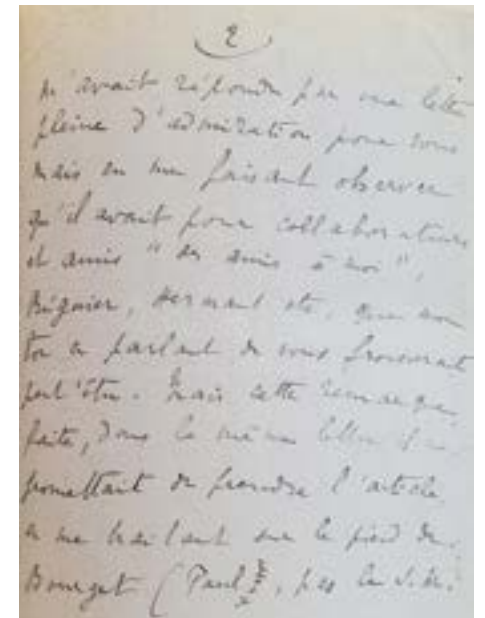 2
m'avait répondu par une lett
pleine d'admiration pour vous
mais en me faisant observer
qu'il avait pour collaborateurs
et amis " des amis à moi ",
Régnier, Hermant etc. que mon
ton en parlant de vous froisserait
peut'être. Mais cette remarque
faite, dans la même lettre il
promettait de prendre l'article
en me traitant sur le pied de
Bourget (Paul), pas